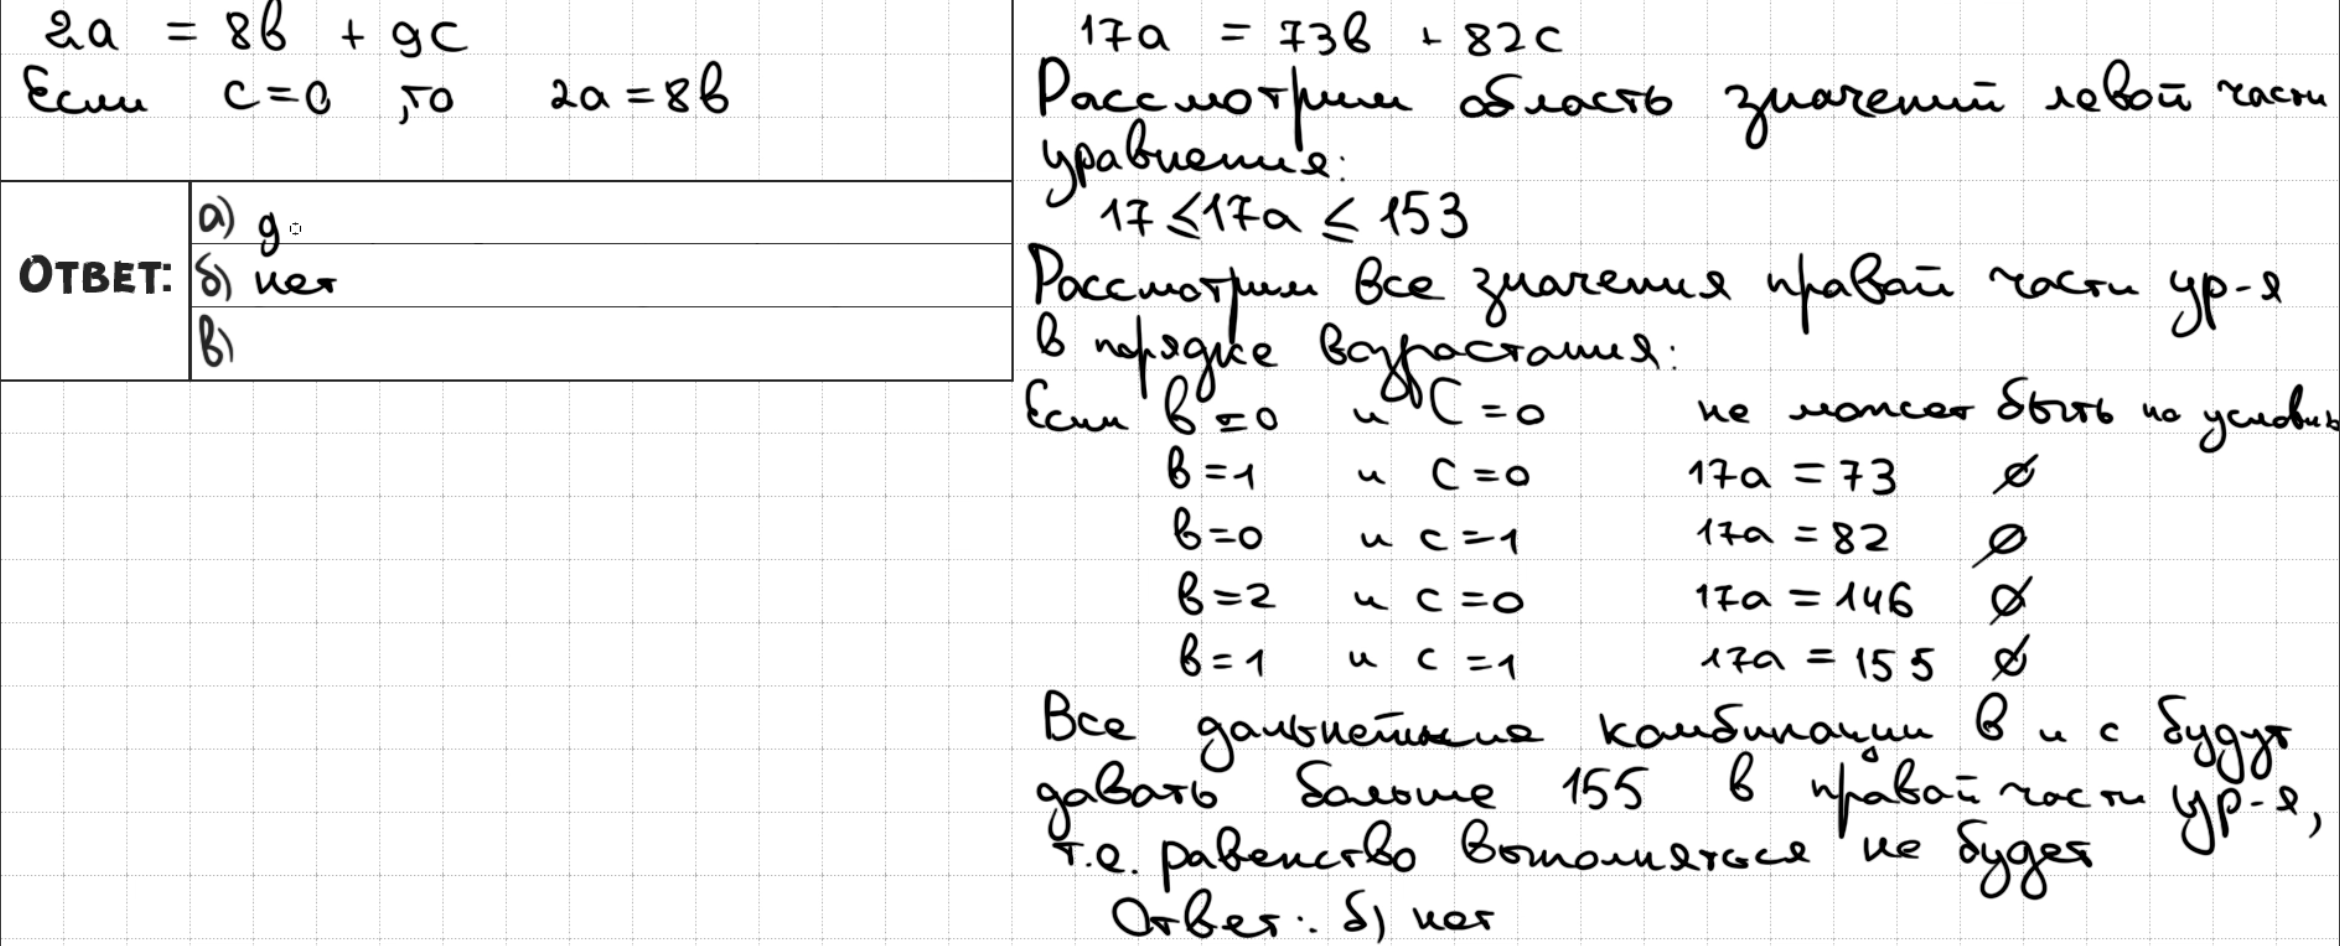 2а = 8в + 9с
Если с=0, то 2а=8в
ОТВЕТ:
а) д
б) нет
в)
17а = 73в + 82с
Рассмотрим область значений левой части
уравнения:
17 ≤ 17а ≤ 153
Рассмотрим все значения правой части ур-я
в порядке возрастания:
Если в=0 и С=0 не может быть по условию
в=1 и С=0 17а = 73 ∅
в=0 и с=1 17а = 82 ∅
в=2 и с=0 17а = 146 ∅
в=1 и с=1 17а = 155 ∅
Все дальнейшие комбинации в и с будут
давать больше 155 в правой части ур-я,
т.е. равенство выполняться не будет
Ответ: б) нет